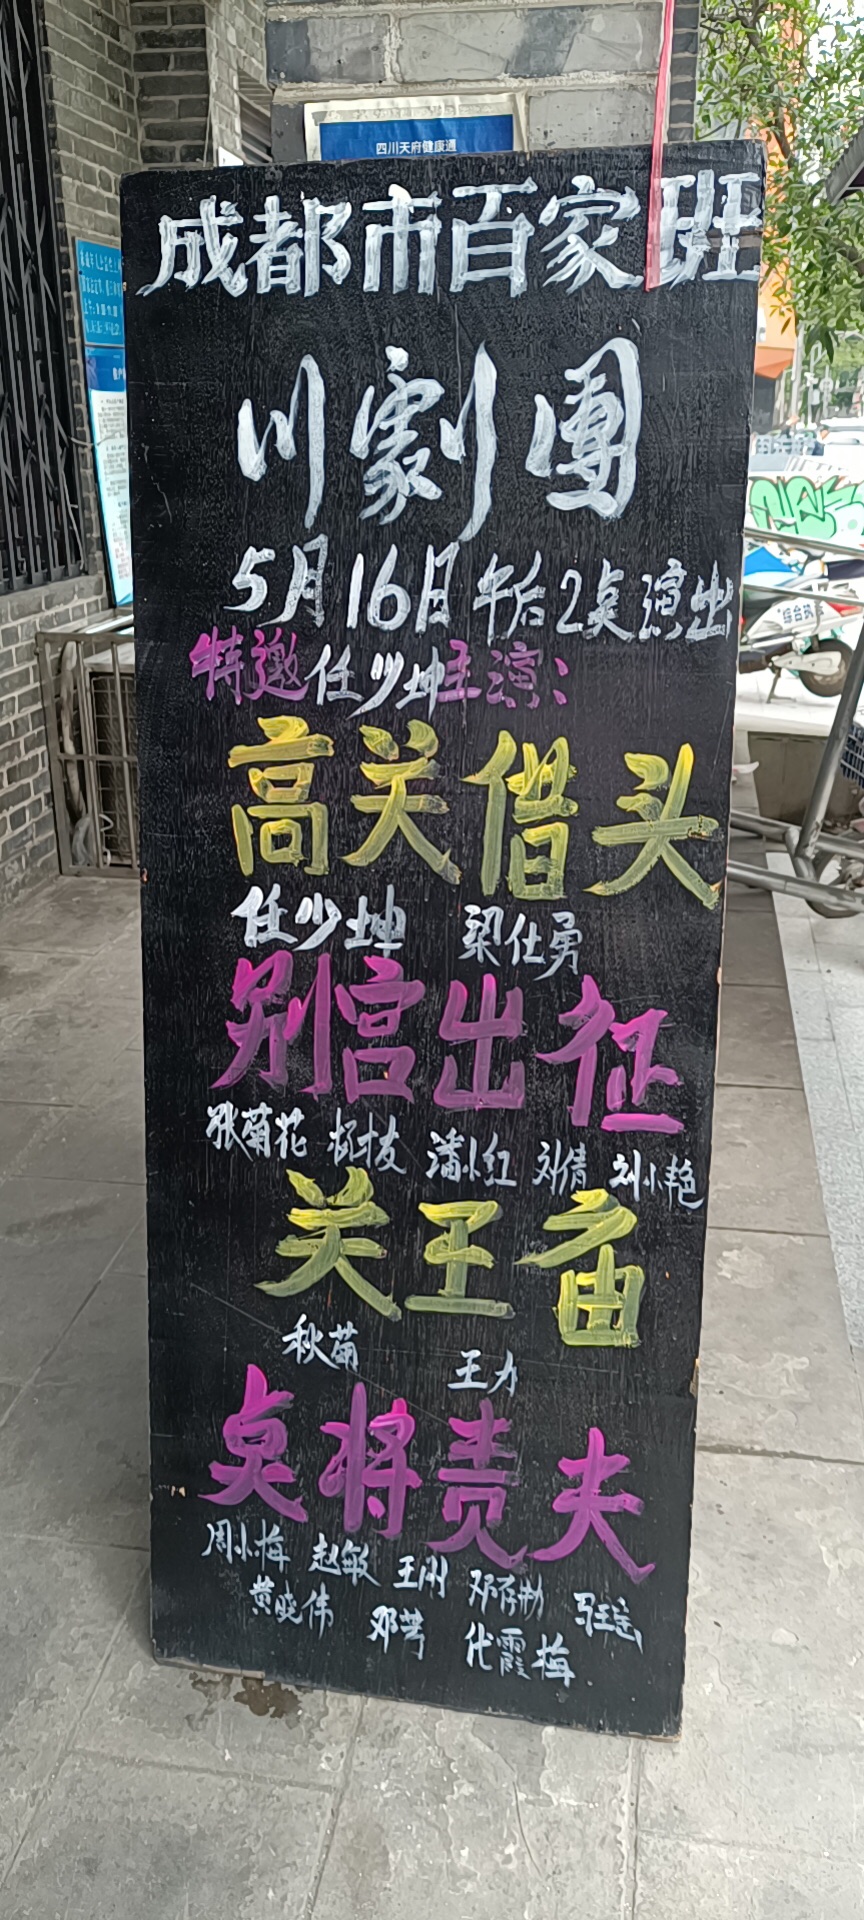 四川天府健康通
成都市百家班
川劇團
5月16日午后2点演出
特邀任少坤主演:
高关借头
任少坤 梁仕勇
别宫出征
张菊花 杨友 潘小红 刘倩 刘小艳
关王庙
秋菊 王力
点将责夫
周小梅 赵敏 王刚 邓存勋 马玉瑶
黄晓伟 邓芳 代霞梅
综合执